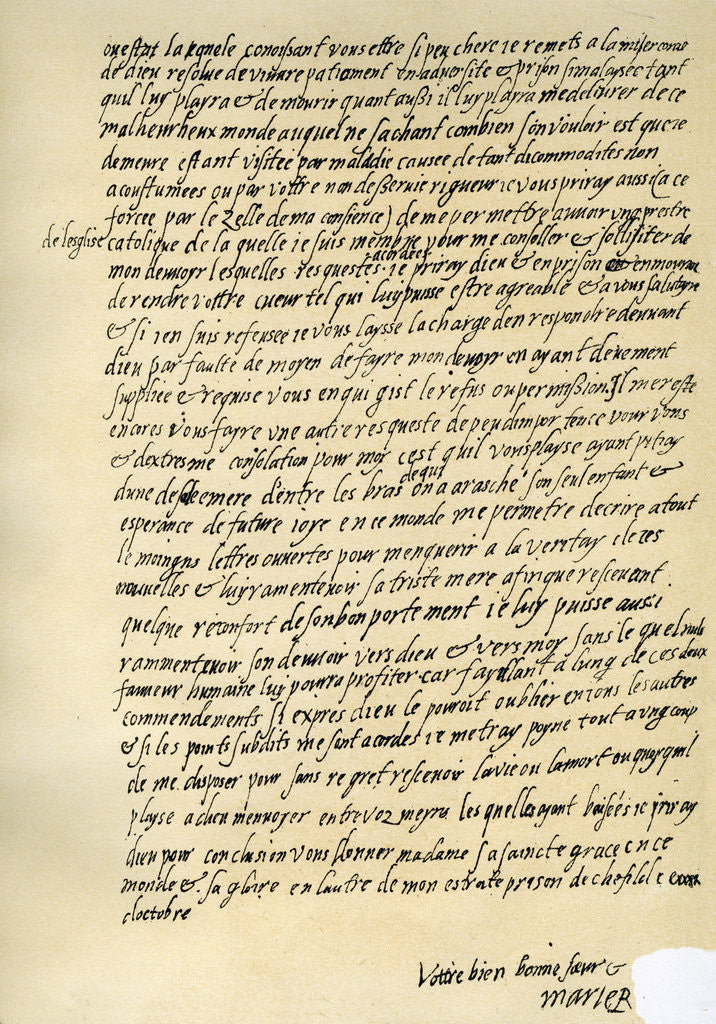 ou estat la quele conoissant vous ettre si peu chere ie remets a la misericorde
de dieu resolue de vivre patiament en adversite & prison si malaysee tant
quil luy playra & de mourir quant aussi il luy playra me delivrer de ce
malheurheux monde auquel ne sachant combien son vouloir est que ie
demeure estant visitee par maladie causee de tant dicommodites non
acoustumees ou par vottre non desservie rigueur ie vous priray aussi (a ce
forcee par le Zelle de ma consience) de me permettre auvoir ung prestre
de lesglise catolique de la quelle ie suis membre pour me consoller & sollisiter de
mon devuoyr lesquelles resquestes acordees ie priray dieu & en prison & en mourant
de rendre vottre cueur tel qui luy puisse estre agreable & a vous salutayre
& si ien suis refusee ie vous laysse la charge den respondre devuant
dieu par faulte de moyen de fayre mon devuoyr en ayant deuement
suppliee & requise vous en qui gist le refus ou permission. Il me reste
encores vous fayre une autre resqueste de peu dimportence pour vous
& dextresme consolation pour moy cest quil vous playse ayant pitiay
dune desolee mere dentre les bras de qui on a arasche son seul enfant &
esperance de future ioye en ce monde me permetre decrire a tout
le moingns lettres ouvertes pour menquerir a la veritay de ces
nouvelles & luy ramentevoir sa triste mere afin que rescevant
quelque reconfort de son bon portement ie luy puisse aussi
rammentevoir son devuoir vers dieu & vers moy sans le quel nulle
faveur humaine luy pourra profiter car fayllant a lung de ces deux
commendements si expres dieu le pouroit oublier en tous les autres
& si les points subdits me sont acordes ie metray poyne tout a ung coup
de me disposer pour sans regret rescevoir la vie ou la mort ou quoy quil
playse a dieu menvoyer entre voz meyns les quelles ayant baisees ie priray
dieu pour conclusion vous donner madame sa saincte grace en ce
monde & sa gloire en lautre de mon estroite prison de chefild le
doctobre
Vottre bien bonne sœur &
MARIE R